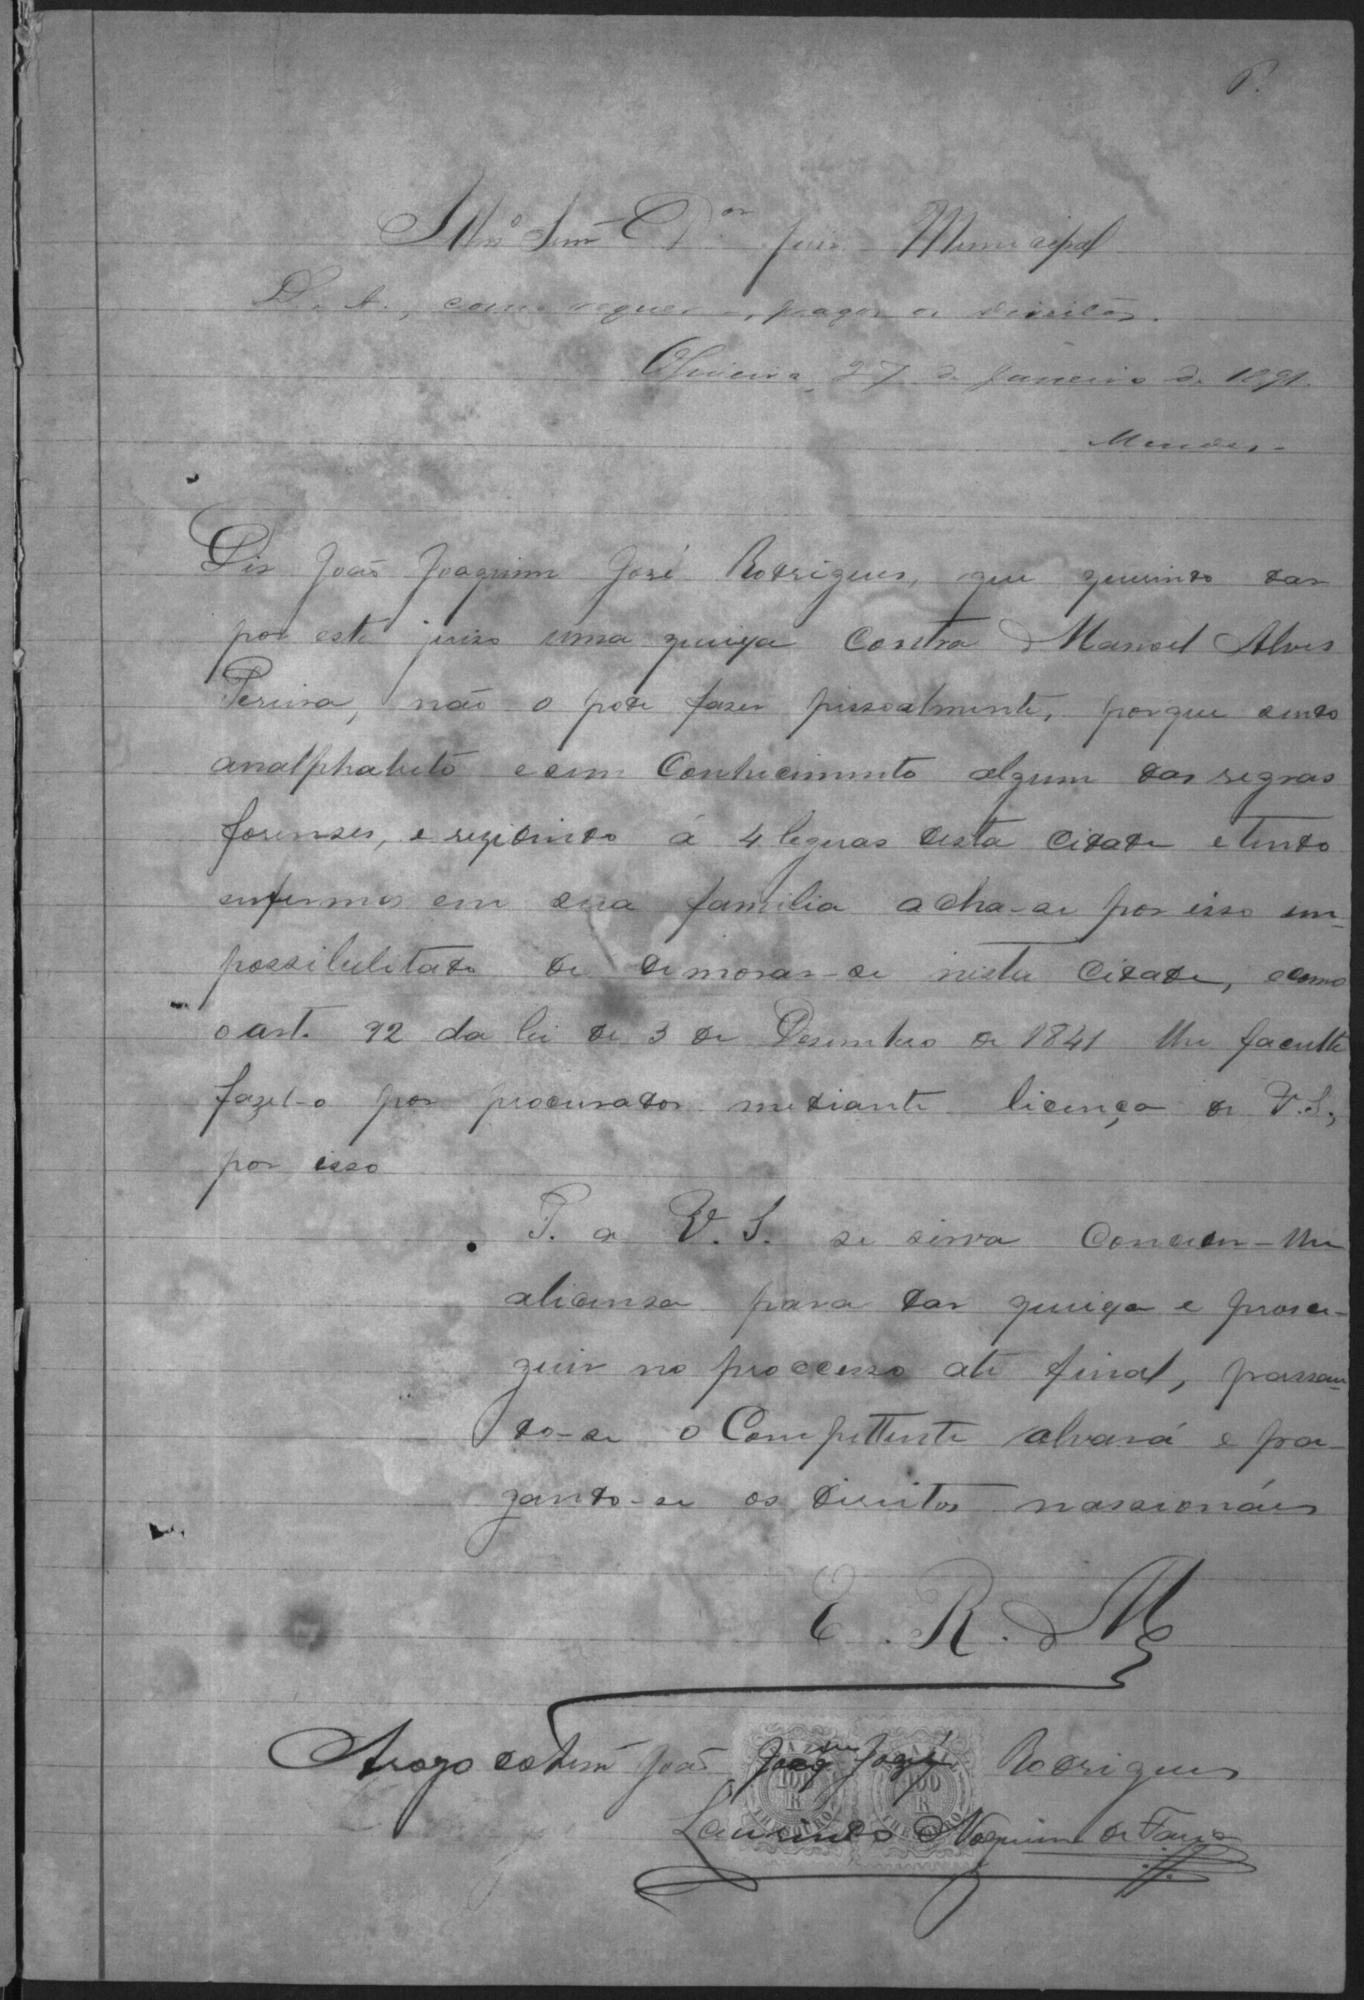 Illmo Snr Dor Juiz Municipal
D. A., como requer, pagos os direitos.
Oliveira, 27 de Janeiro de 1891.
Mendes
Diz João Joaquim José Rodrigues, que querendo dar
por este juizo uma queixa contra Manoel Alves
Pereira, não o pode fazer pessoalmente, porque sendo
analphabeto e sem conhecimento algum das regras
forenses, e rezidindo á 4 legoas desta cidade e tendo
enfermos em sua familia acha-se por isso im-
possibilitado de demorar-se nesta cidade, e como
o art. 92 da lei de 3 de Desembro de 1841 lhe faculte
fazel-o por procurador mediante licença de V.S.,
por isso
P. a V. S. se sirva conceder-lhe
a licensa para dar queixa e prose-
guir no proccesso até final, passan-
do-se o Compettente alvará e pa-
gando-se os direitos nassionáes
E. R. M
Arogo de João Joaqm José Rodrigues
Laurindo Noquim de Faria
100
R
THESOURO
100
R
THESOURO